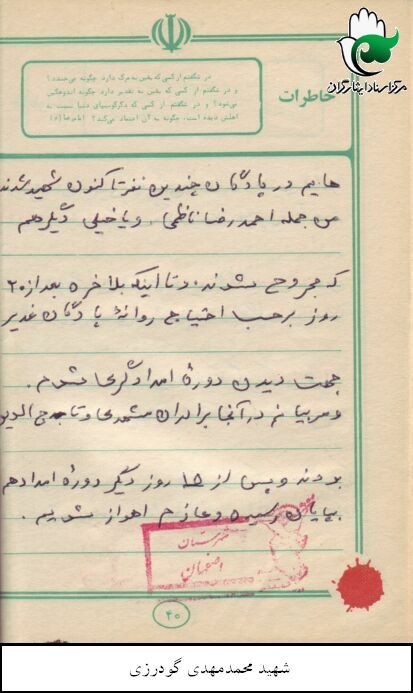 مرکز اسناد ایثارگران
خاطرات
در شگفتم از کسی که یقین به مرگ دارد چگونه می‌خندد؟
و در شگفتم از کسی که یقین به تقدیر دارد چگونه اندوهگین
می‌شود؟ و در شگفتم از کسی که دگرگونیهای دنیا نسبت به
اهلش دیده است، چگونه به آن اعتماد می‌کند؟
هایم در پادگان چندین نفر تا کنون شهید شدند
من جمله احمد رضا ناظمی. و یا خیلی دیگر هم
که مجروح شدند. و تا اینکه بلاخره بعد از ۲۰
روز بر حسب احتیاج روانهٔ پادگان غدیر
جهت دیدن دورهٔ امدادگری شدم.
و مربیانم در آنجا برادران
بودند و پس از ۱۵ روز دیگر دورهٔ امداد هم
بپایان رسید و عازم اهواز شدیم.
اصفهان
۴۰
شهید محمدمهدی گودرزی